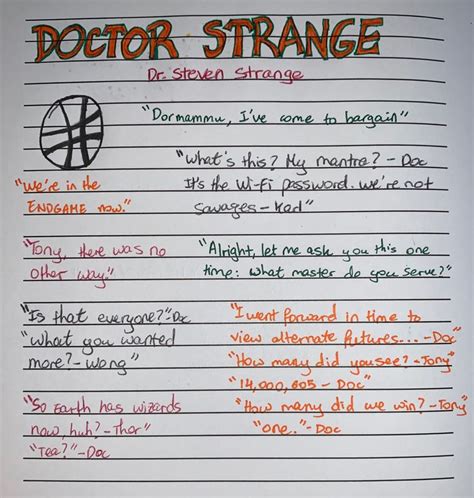 DOCTOR STRANGE
Dr. Steven Strange
"Dormammu, I've come to bargain"
"What's this? My mantra? - Doc
It's the Wi-Fi password. we're not
savages - Kad"
"We're in the
ENDGAME now."
"Tony, there was no
other way."
"Alright, let me ask you this one
time: what master do you serve?"
"Is that everyone?" Doc
"What you wanted
more? - Wong"
"I went forward in time to
view alternate futures... - Doc"
"How many did you see? - Tony"
"14,000,605 - Doc"
"How many did we win? - Tony"
"one.." - Doc
"So Earth has wizards
now, huh? - Thor"
"Tea?" - Doc